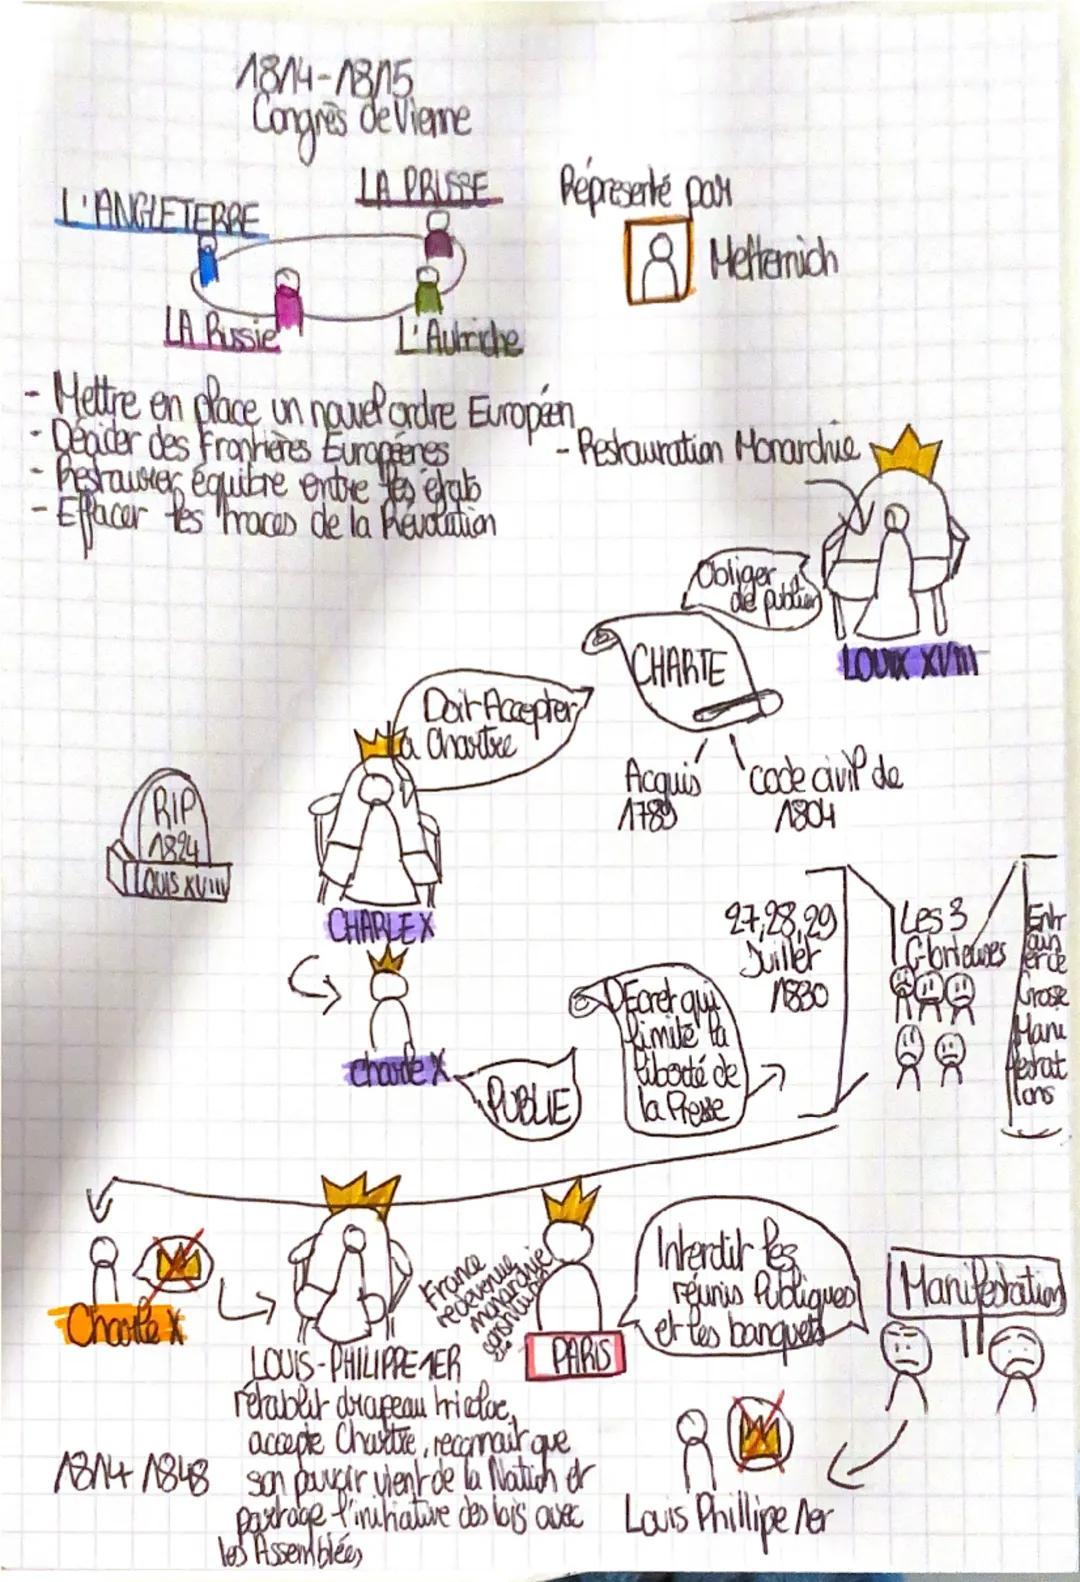 1814-1815
Congrès de Vienne
L'ANGLETERRE
LA PRUSSE
Répresenté par
Metternich
LA Russie
L'Autriche
- Mettre en place un nouvel ordre Européen
- Décider des Frontières Européenes
- Restaurer équibre entre les états
- Effacer les Traces de la Révolution
- Restauration Monarchie
Obliger
de publier
CHARTE
LOUIX XVIII
Doit Accepter
la Chartre
Acquis
1789
code civil de
1804
RIP
1824
LOUIS XVIII
CHARLE X
27,28,29
Juillet
1830
Les 3
Glorieuses
Entr
ain
er de
Grosse
Mani
festat
ions
Charle X
PUBLIE
DEcret qui
limite la
liberté de
la Presse
Charle X
LOUIS-PHILIPPE 1ER
rétablit drapeau tricloe,
accepte Chartre, reconnait que
son pouvoir vient de la Nation et
partage l'initiative des lois avec
les Assemblées
1814 1848
France
redevenue
monarchie
PARIS
Interdit les
réunis Publiques
et les banquets
Manifestation
Louis Phillipe 1er